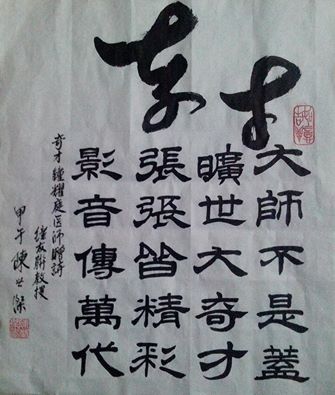 奇才
大師不是蓋
曠世大奇才
張張皆精彩
影音傳萬代
奇才鐘耀庭医師贈詩
鐘友聯教授
甲午陳世傑